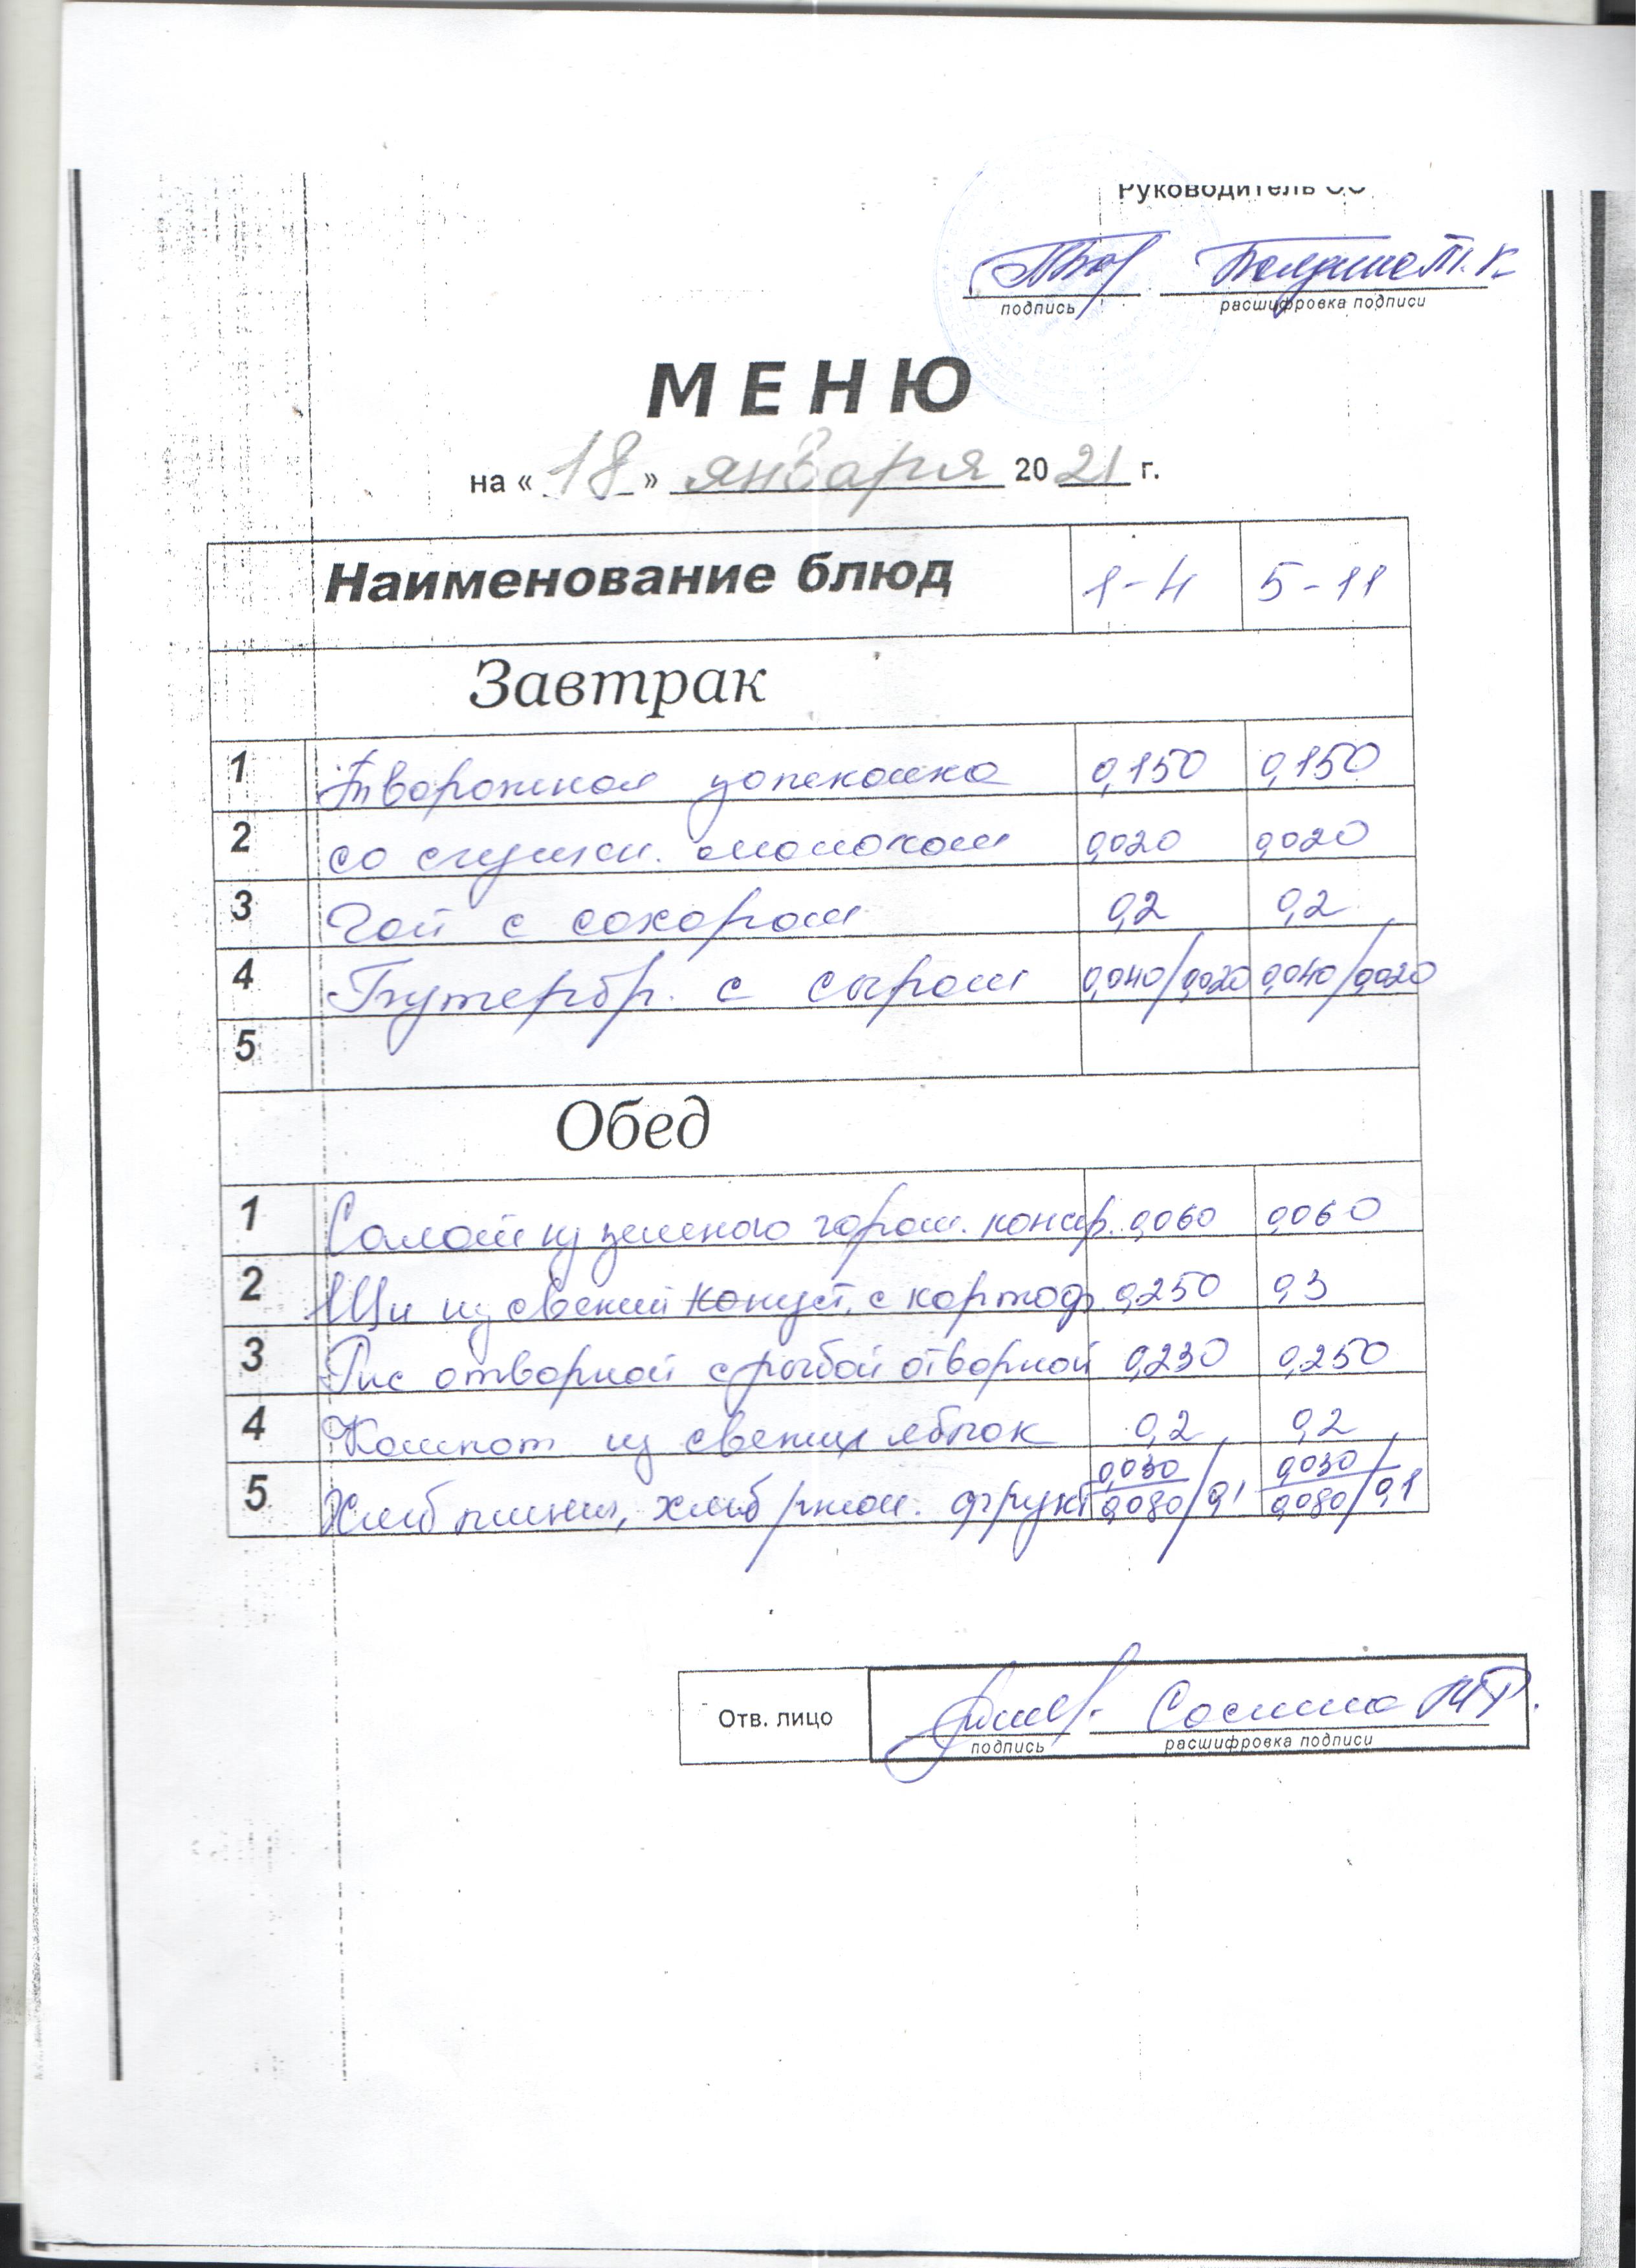 Руководитель ОО
подпись расшифровка подписи
МЕНЮ
на « 18 » января 20 21 г.
Наименование блюд 1-4 5-11
Завтрак
1 Творожная запеканка 0,150 0,150
2 со сгущен. молоком 0,020 0,020
3 Чай с сахаром 0,2 0,2
4 Бутербр. с сыром 0,040/0,020 0,040/0,020
5
Обед
1 Салат из зеленого горош. конср. 0,060 0,060
2 Щи из свежий капуст. с картоф. 0,250 0,3
3 Рис отварной с рыбой отварной 0,230 0,250
4 Компот из свежих яблок 0,2 0,2
5 Хлеб пшен, хлеб ржан. фрукт 0,030/0,080/0,1 0,030/0,080/0,1
Отв. лицо
подпись расшифровка подписи